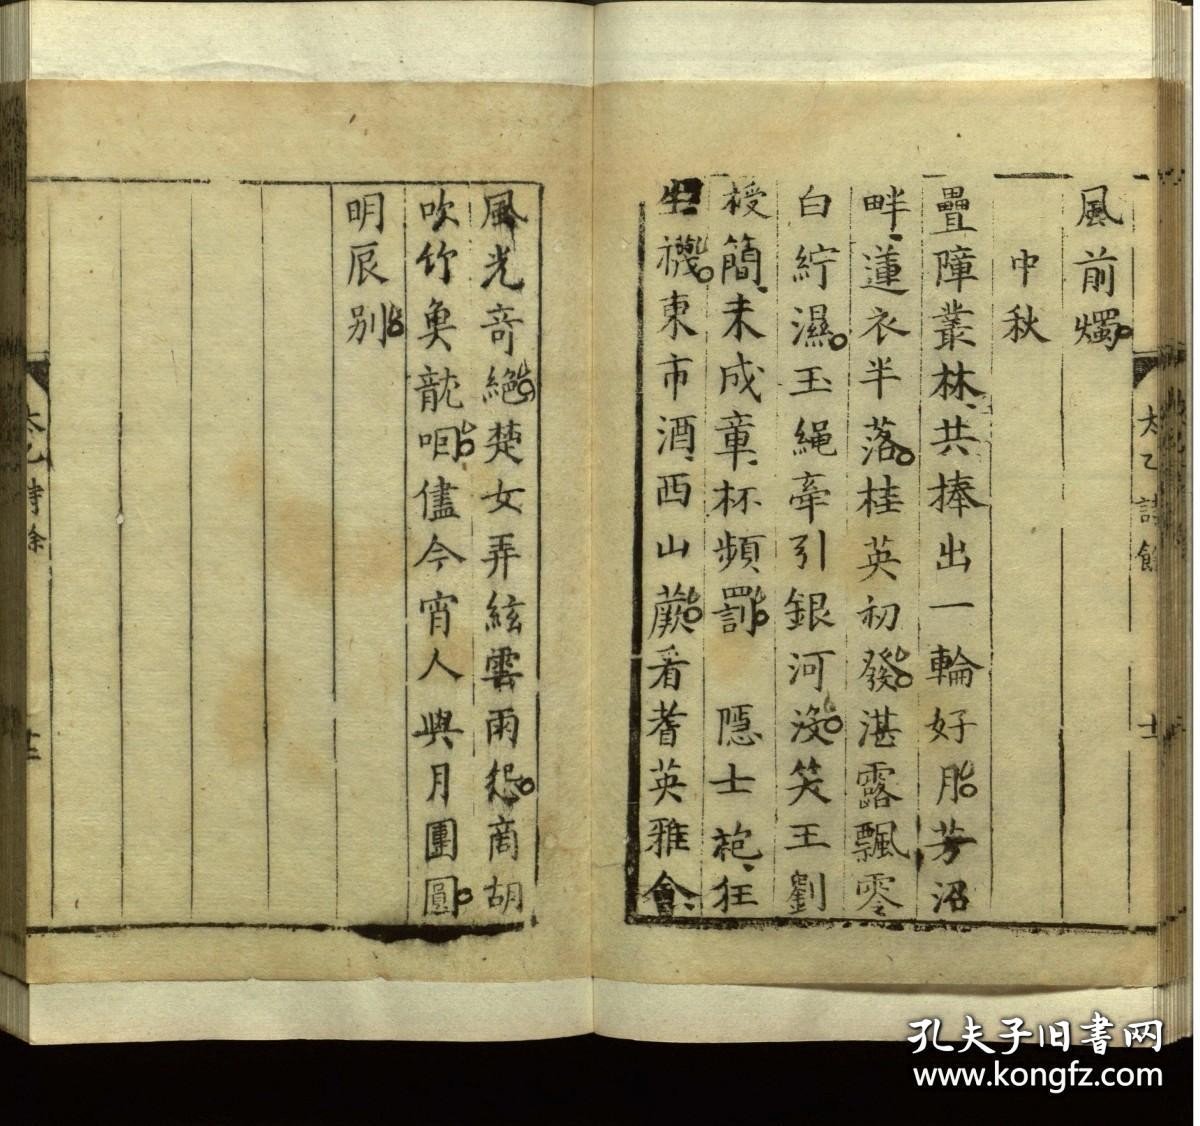 風前燭
中秋
疊障叢林共捧出一輪好月芳沼
畔蓮衣半落桂英初發湛露飄零
白紵濕玉繩牽引銀河沒笑王劉
授簡未成章杯頻罰　隱士袍狂
生襪東市酒西山蕨看耆英雅會
風光奇絕楚女弄絃雲雨怨商胡
吹竹魚龍咽儘今宵人與月團圓
明辰別
太乙詩餘
太乙詩餘
孔夫子旧书网
www.kongfz.com